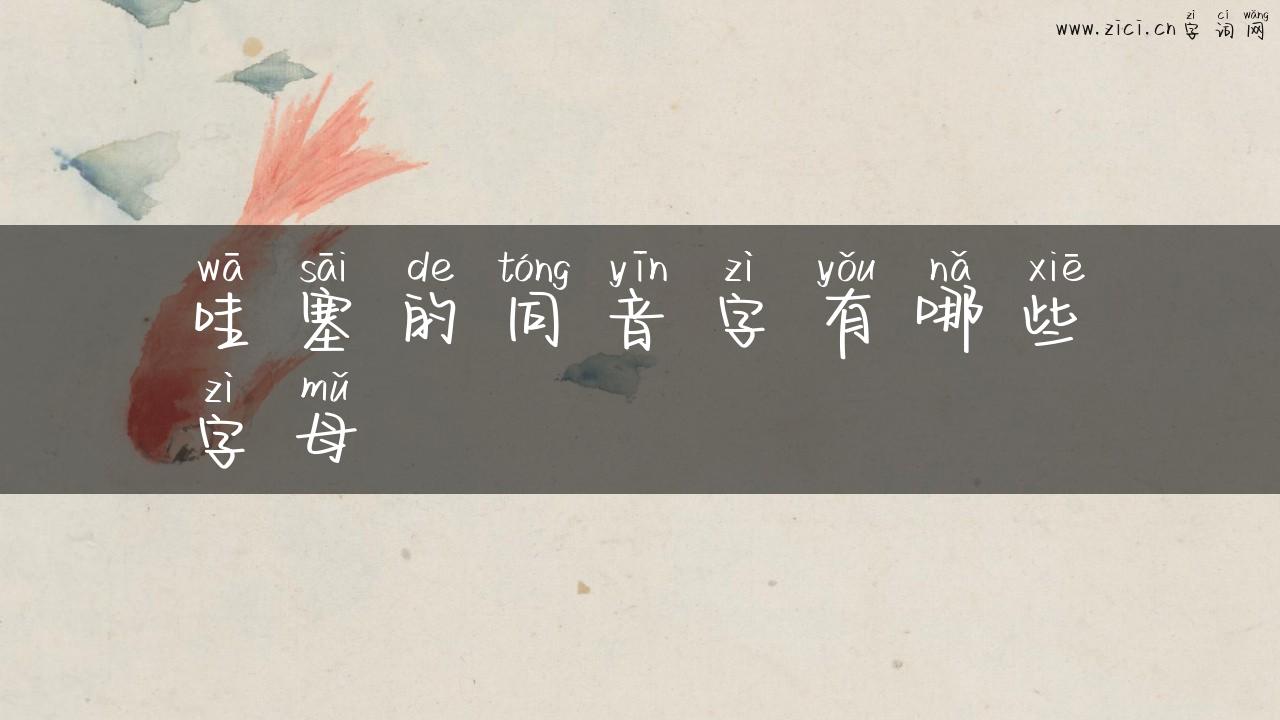 www.zici.cn zì cí wǎng
字词网
wā sāi de tóng yīn zì yǒu nǎ xiē
哇塞的同音字有哪些
zì mǔ
字母